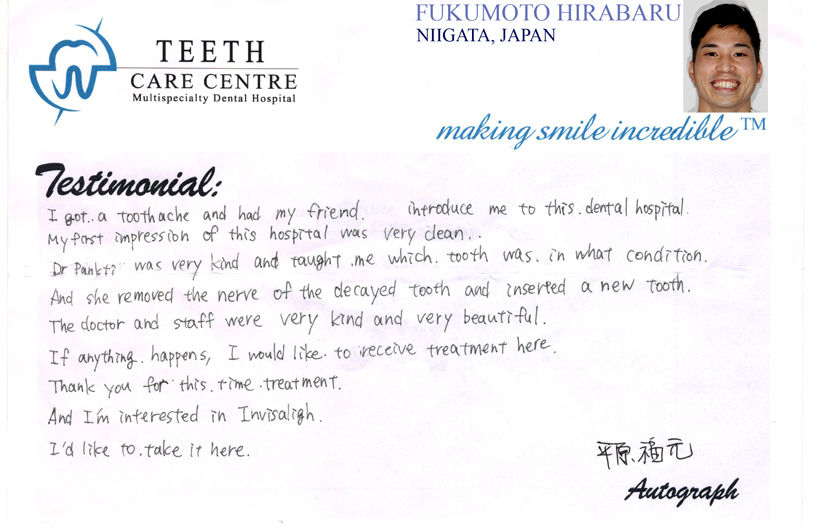 TEETH
CARE CENTRE
Multispecialty Dental Hospital
FUKUMOTO HIRABARU
NIIGATA, JAPAN
making smile incredible™
Testimonial:
I got a toothache and had my friend. introduce me to this dental hospital.
My first impression of this hospital was very clean..
Dr Pankti was very kind and taught me which tooth was in what condition.
And she removed the nerve of the decayed tooth and inserted a new tooth.
The doctor and staff were very kind and very beautiful.
If anything happens, I would like to receive treatment here.
Thank you for this time treatment.
And I'm interested in Invisaligh.
I'd like to take it here.
平原 福元
Autograph